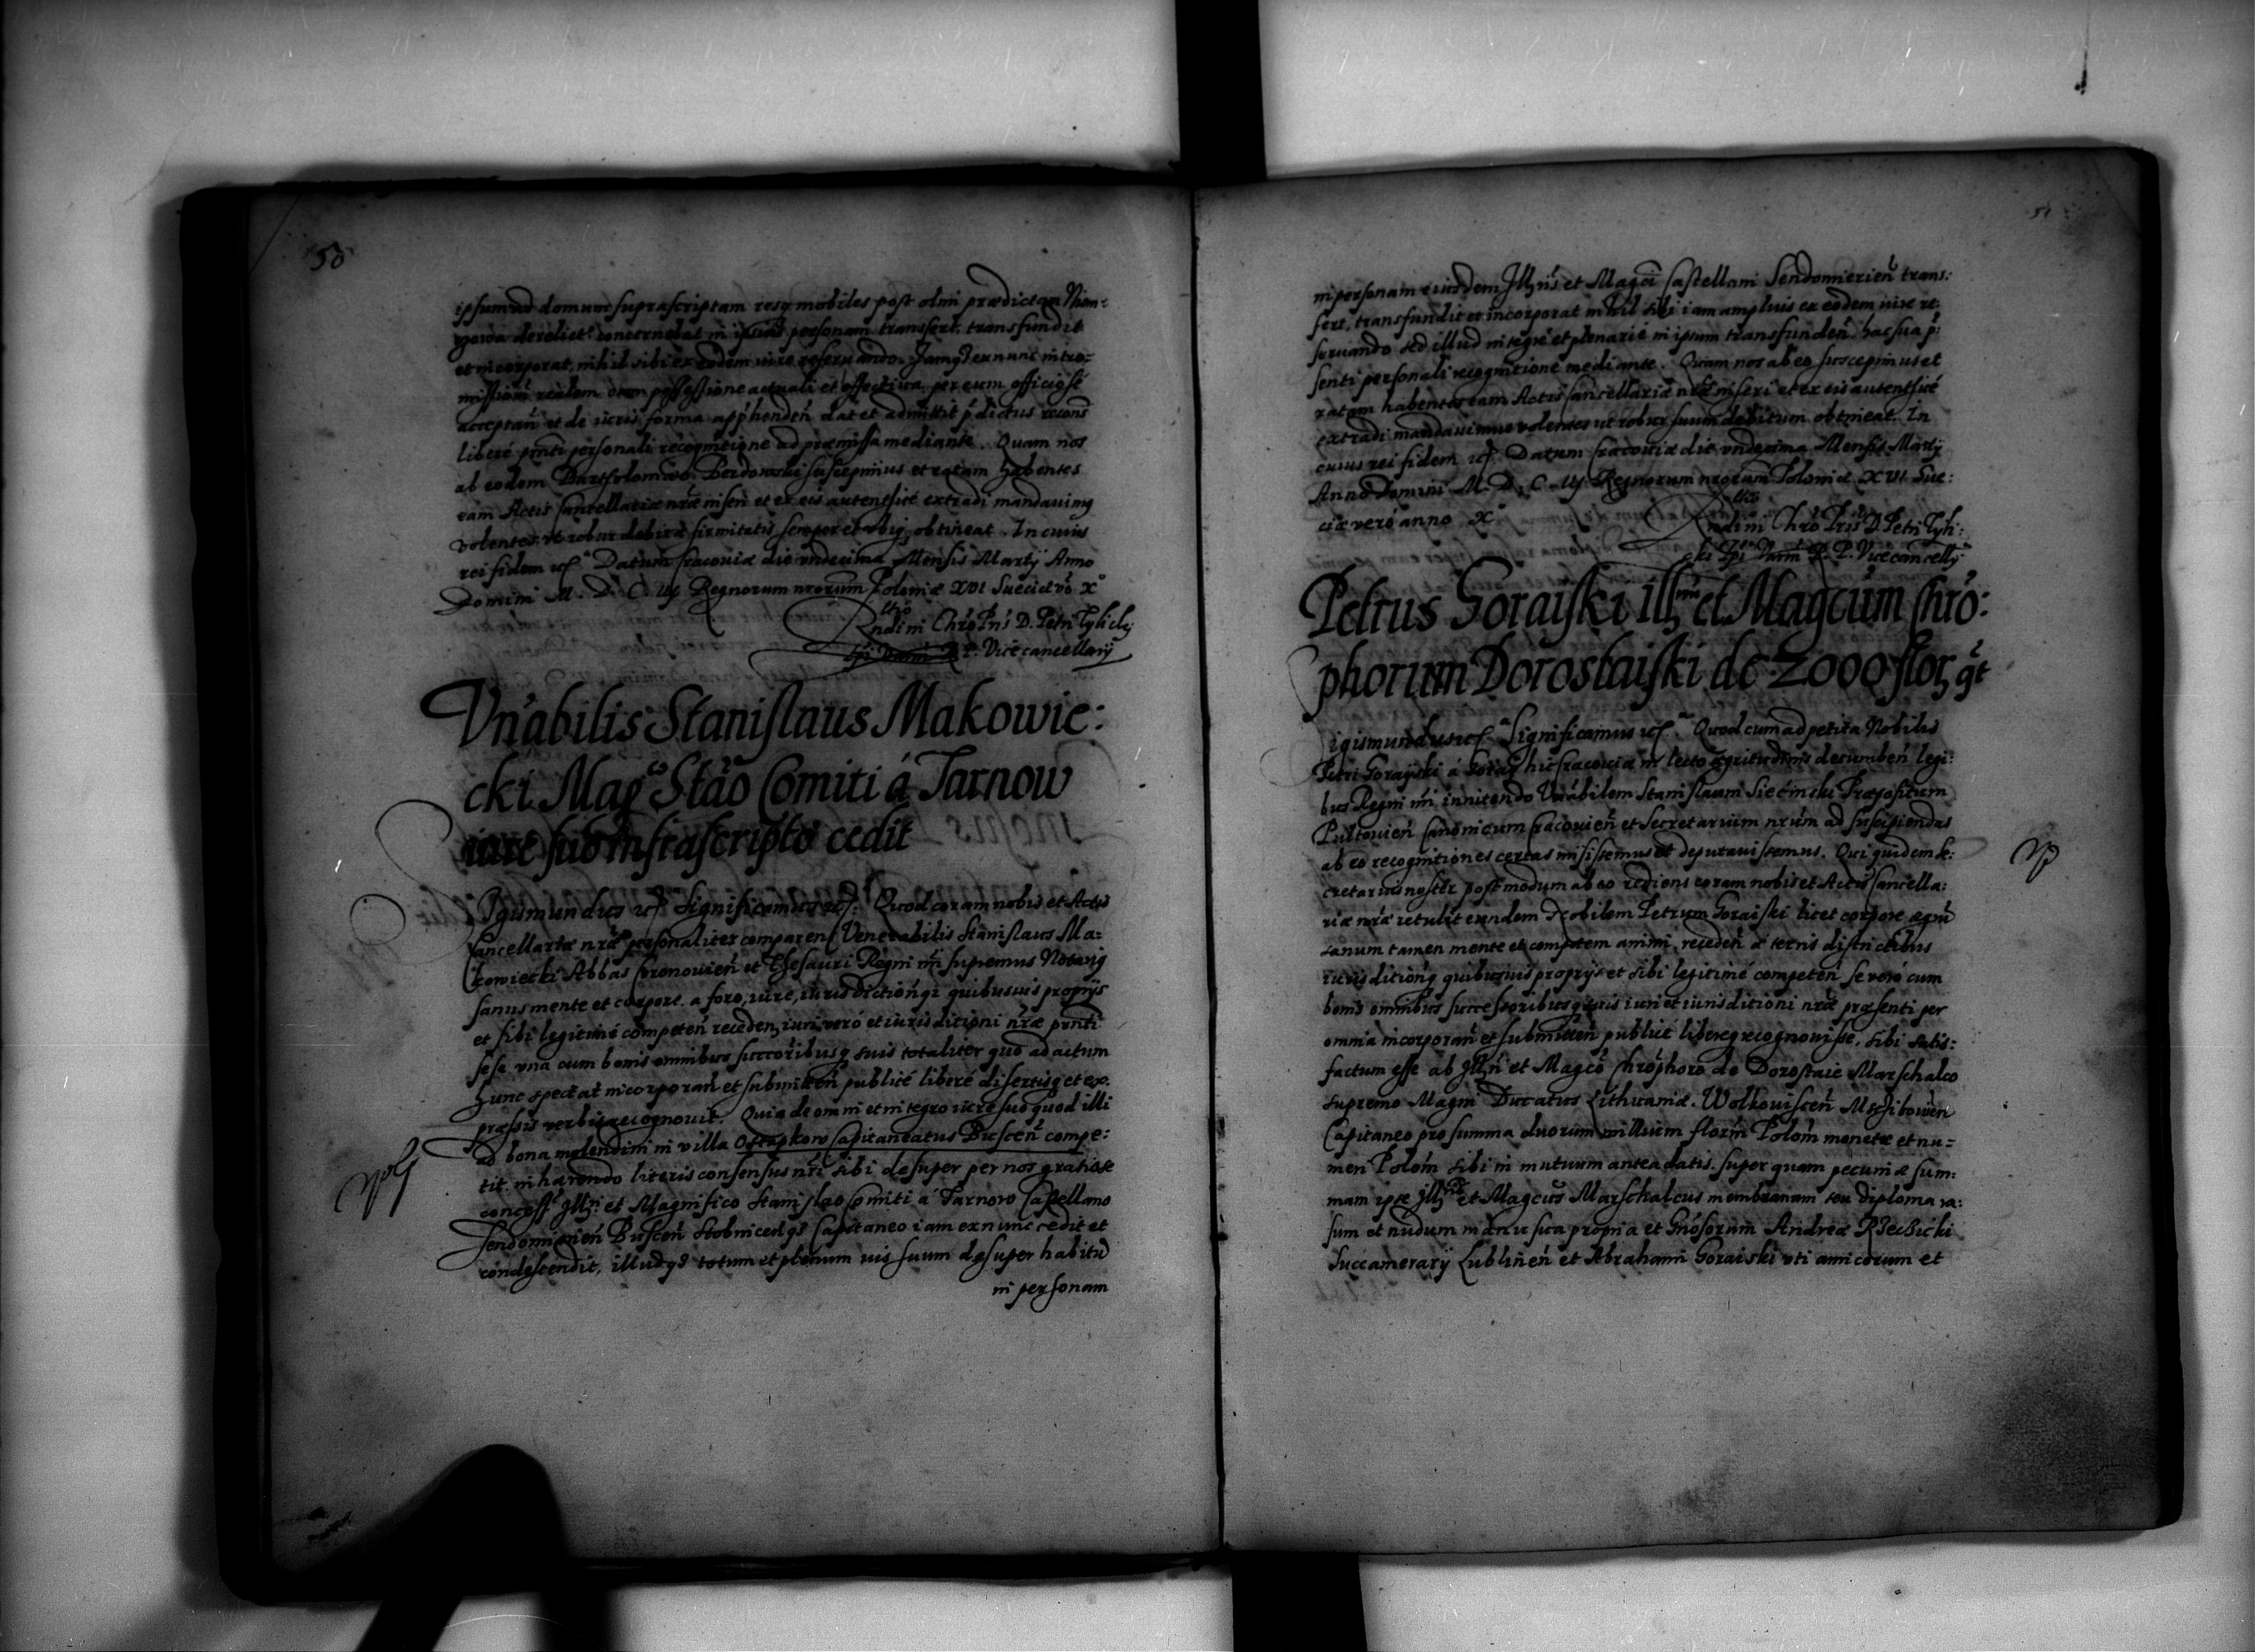 50
ipsum ad domum suprascriptam resq mobiles post olim prædictam
derelict concernebat in personam transfert, transfundit
et incorporat, nihil sibi ex eodem iure reseruando. Iamq3 ex nunc intro-
missioni realem possessione actuali et effectiua per eum officiose
acceptan et de iuris forma apphenden dat et admittit p dictus recons
liberé pnti personali recognicione ad præmissa mediante. Quam nos
ab eodem Bartholomæo suscepimus et ratam habentes
eam Actis Cancellariæ nræ inseri et ex eis autenticé extradi mandauimq
volentes vt robur debitæ firmitatis semper et vbiq obtineat. In cuius
rei fidem Datum Cracouiæ die vndecima Mensis Martij Anno
Domini M. D. C. iij Regnorum nrorum Poloniæ XVI Sueciæ vo X°
Rndi in Chro Pris D. Petri Tylicki
Epi Varm R. P. Vicecancellarij
Vn̄abilis Stanislaus Makowie:
cki Magco Stāo Comiti á Tarnow
iure suo infrascripto cedit
Igismundus Significamus Quod coram nobis et Actis
Cancellariæ nræ personaliter comparen Venerabilis Stanislaus Ma=
kowiecki Abbas Coronouien et Thesauri Regni nri supremus Notariq
sanus mente et corpore. a foro, iure, iurisdictionq3 quibusuis proprijs
et sibi legitimé competen receden, iuri veró et iurisdictioni nræ pnti
sese vna cum bonis omnibus succoribusq suis totaliter quo ad actum
hunc spectat incorporan et submitten publicé liberé disertisq et ex
præssis verbis recognouit. Quia de omni et integro iure suo quod illi
ad bona molendini in villa Ostapkow Capitaneatus Buscen compe:
tit. inhærendo literis consensus nri sibi desuper per nos gratiose
concess Illri et Magnifico Stanislao Comiti á Tarnow Castellano
Sendomirien Buscen Stobnicenq3 Capitaneo iam ex nunc cedit et
condescendit, illudq3 totum et plenum ius suum desuper habitū
in personam
51
in personam eiusdem Illris et Magci Castellani Sendomirien trans:
fert, transfundit et incorporat nihil sibi iam amplius ex eodem iure re:
seruando sed illud integré et plenarié in ipsum transfunden. hac sua p:
senti personali recognitione mediante. Quam nos ab eo suscepimus et
ratam habentes eam Actis Cancellariæ nræ inseri et ex eis autenticé
extradi mandauimus volentes ut robur suum debitum obtineat. In
cuius rei fidem Datum Cracouiæ die vndecima Mensis Martij
Anno Domini M. D. C. iij Regnorum nrorum Poloniæ XVI Sue:
ciæ veró anno X°
Rndi in Chro Pris D. Petri Tyli:
cki Epi Varm R. P. Vicecancellrij
Petrus Goraiski Illm et Magcum Chrō:
phorum Dorostaiski de 2000 flor qt
igismundus Significamus Quod cum ad petita Nobilis
Petri Gorayski á Goray hic Cracouiæ in lecto ægritudinis decumben legi:
bus Regni nri innitendo Vnabilem Stanislaum Siecinski Præpositum
Pultouien Canonicum Cracouien et Secretarium nrum ad suscipiendas
ab eo recognitiones certas misissemus et deputauissemus. Qui quidem Se:
cretarius noster postmodum ab eo rediens coram nobis et Actis Cancella:
riæ nræ retulit eundem Nobilem Petrum Goraiski licet corpore ægrū
sanum tamen mente et compotem animi, receden á terris districtibus
iurisdictionq quibusuis proprijs et sibi legitimé competen se veró cum
bonis omnibus successoribusq suis iuri et iurisdictioni nræ præsenti per
omnia incorporan et submitten publicé libereq recognouisse, sibi satis:
factum esse ab Illri et Magco Chrophoro de Dorostaie Marschalco
supremo Magni Ducatus Lithuaniæ. Wolkouiscen Mschibouien
Capitaneo pro summa duorum millium florin Polon monetæ et nu=
meri Polon sibi in mutuum antea datis. super quam pecuniæ sum:
mam ipse Illris et Magcus Marschalcus membranam seu diploma ra:
sum et nudum manu sua propria et Gnosorum Andreæ Rzeczicki
Succamerarij Lublinen et Abrahami Goraiski vti amicorum et